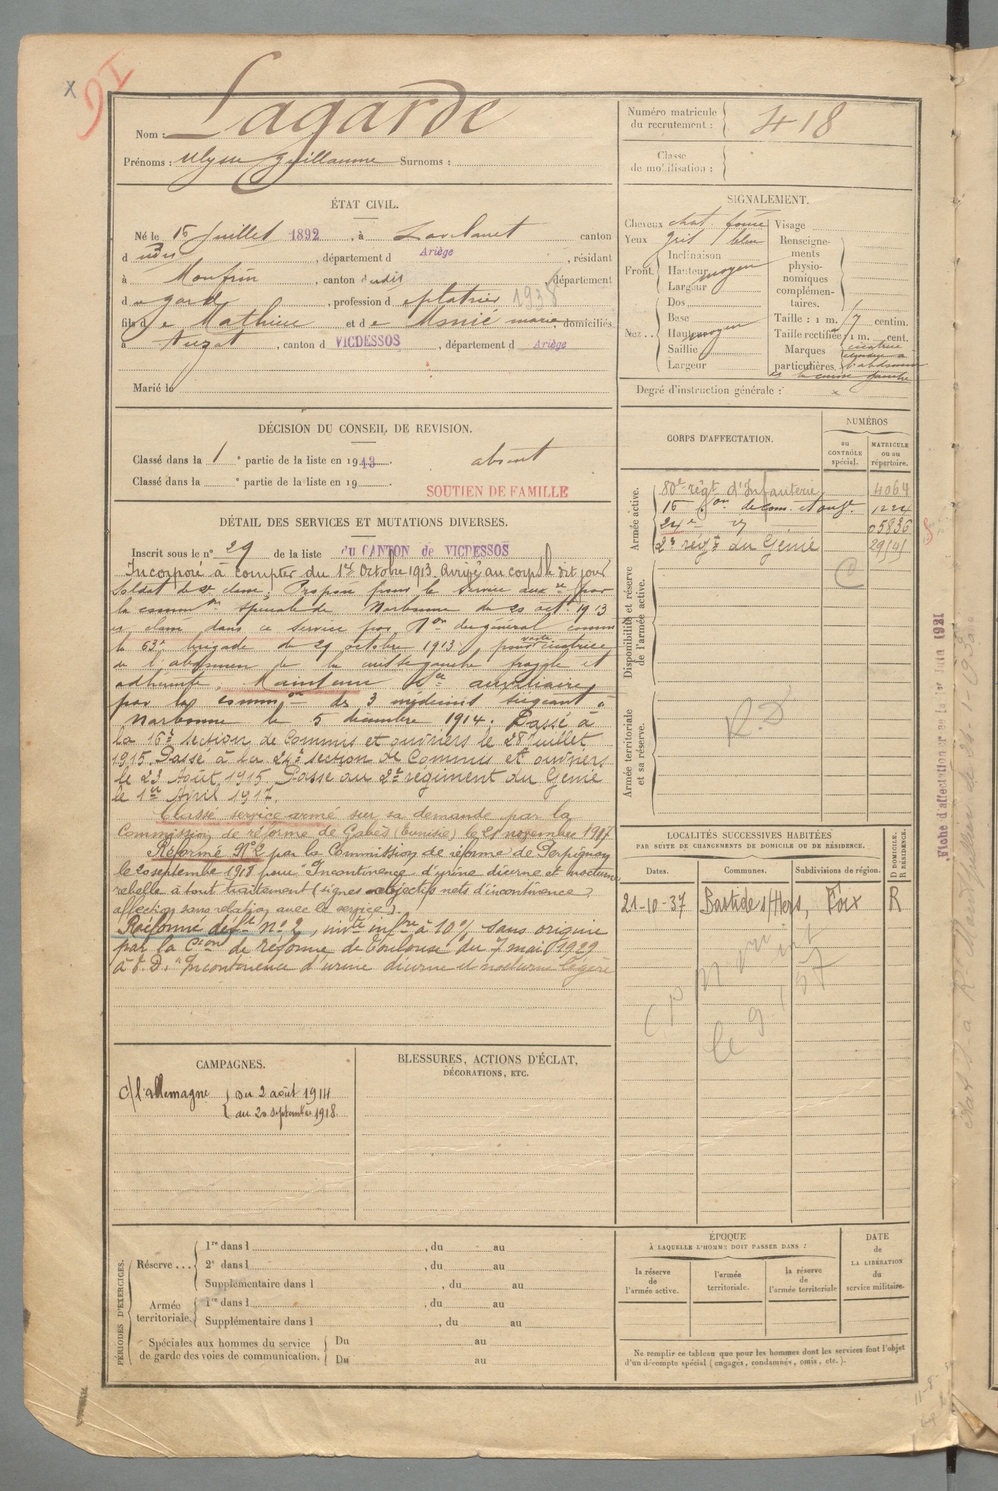 x
DI
Nom : Lagarde
Prénoms : Ulysse Guillaume Surnoms :
Numéro matricule du recrutement : 418
Classe de mobilisation :
ÉTAT CIVIL.
Né le 15 Juillet 1892, à Lavelanet canton
d udit, département d Ariège, résidant
à Monfrin, canton d udit, département
d u gard, profession de platrier 1938
fils de Mathieu et de Marie, domiciliés
à Auzat, canton d VICDESSOS, département d Ariège
Marié le
SIGNALEMENT.
Cheveux chat foncé
Yeux gris bleu
Front. Inclinaison
Hauteur moyen
Largeur
Dos
Nez.. Base
Hauteur moyen
Saillie
Largeur
Visage
Renseignements physionomiques complémentaires.
Taille : 1 m. 7 centim.
Taille rectifiée : 1 m. cent.
Marques particulières. cicatrice abdomen cuisse gauche
Degré d'instruction générale : x
DÉCISION DU CONSEIL DE REVISION.
Classé dans la 1e partie de la liste en 1913. absent
Classé dans la e partie de la liste en 19
SOUTIEN DE FAMILLE
DÉTAIL DES SERVICES ET MUTATIONS DIVERSES.
Inscrit sous le n° 29 de la liste du CANTON de VICDESSOS
Incorporé à compter du 1er Octobre 1913. Arrivé au corps le dit jour
Soldat de 2e classe. Proposé pour le service auxre par
la common spéciale de Narbonne du 20 oct 1913
et classé dans ce service par Don du général commt
la 63e brigade du 29 octobre 1913 pour vaste cicatrice
de l'abdomen de la cuisse gauche fragile et
adhérente. Maintenu sce auxiliaire
par la commion de 3 médecins siégeant à
Narbonne le 5 décembre 1914. Passé à
la 16e section de Commis et ouvriers le 28 juillet
1915. Passé à la 24e section de Commis et ouvriers
le 23 Août 1915. Passé au 2e régiment du Génie
le 1er Avril 1917.
Classé service armé sur sa demande par la
Commission de réforme de Gabès (Tunisie) le 21 novembre 1917.
Réformé N°2 par la Commission de réforme de Perpignan
le 20 septembre 1918 pour Incontinence d'urine diurne et nocturne
rebelle à tout traitement (signes objectifs nets d'incontinence
affection sans relation avec le service).
Réformé défve n° 2, invte infre à 10% sans origine
par la Cion de réforme de Toulouse du 7 mai 1929
à t. D. "Incontinence d'urine diurne et nocturne légère
CORPS D'AFFECTATION.
NUMÉROS
au CONTRÔLE spécial.
MATRICULE ou au répertoire.
Armée active.
80e régt d'Infanterie 4064
16 on de com. et ouv. 1224
24e 05836
2e régt du Génie 2914
Disponibilité et réserve de l'armée active.
C
Armée territoriale et sa réserve.
R.D
LOCALITÉS SUCCESSIVES HABITÉES
PAR SUITE DE CHANGEMENTS DE DOMICILE OU DE RÉSIDENCE.
Dates. Communes. Subdivisions de région. D DOMICILE. R RÉSIDENCE.
21-10-37 Bastide s/ Hers, Foix R
CAMPAGNES.
c/ l'allemagne du 2 août 1914
au 20 septembre 1918.
BLESSURES, ACTIONS D'ÉCLAT,
DÉCORATIONS, ETC.
PÉRIODES D'EXERCICES.
Réserve... 1re dans l , du au
2e dans l , du au
Supplémentaire dans l , du au
Armée territoriale. 1re dans l , du au
Supplémentaire dans l , du au
Spéciales aux hommes du service de garde des voies de communication. Du au
Du au
ÉPOQUE
À LAQUELLE L'HOMME DOIT PASSER DANS :
la réserve de l'armée active.
l'armée territoriale.
la réserve de l'armée territoriale
DATE de LA LIBÉRATION du service militaire.
Ne remplir ce tableau que pour les hommes dont les services font l'objet
d'un décompte spécial (engagés, condamnés, omis, etc.).